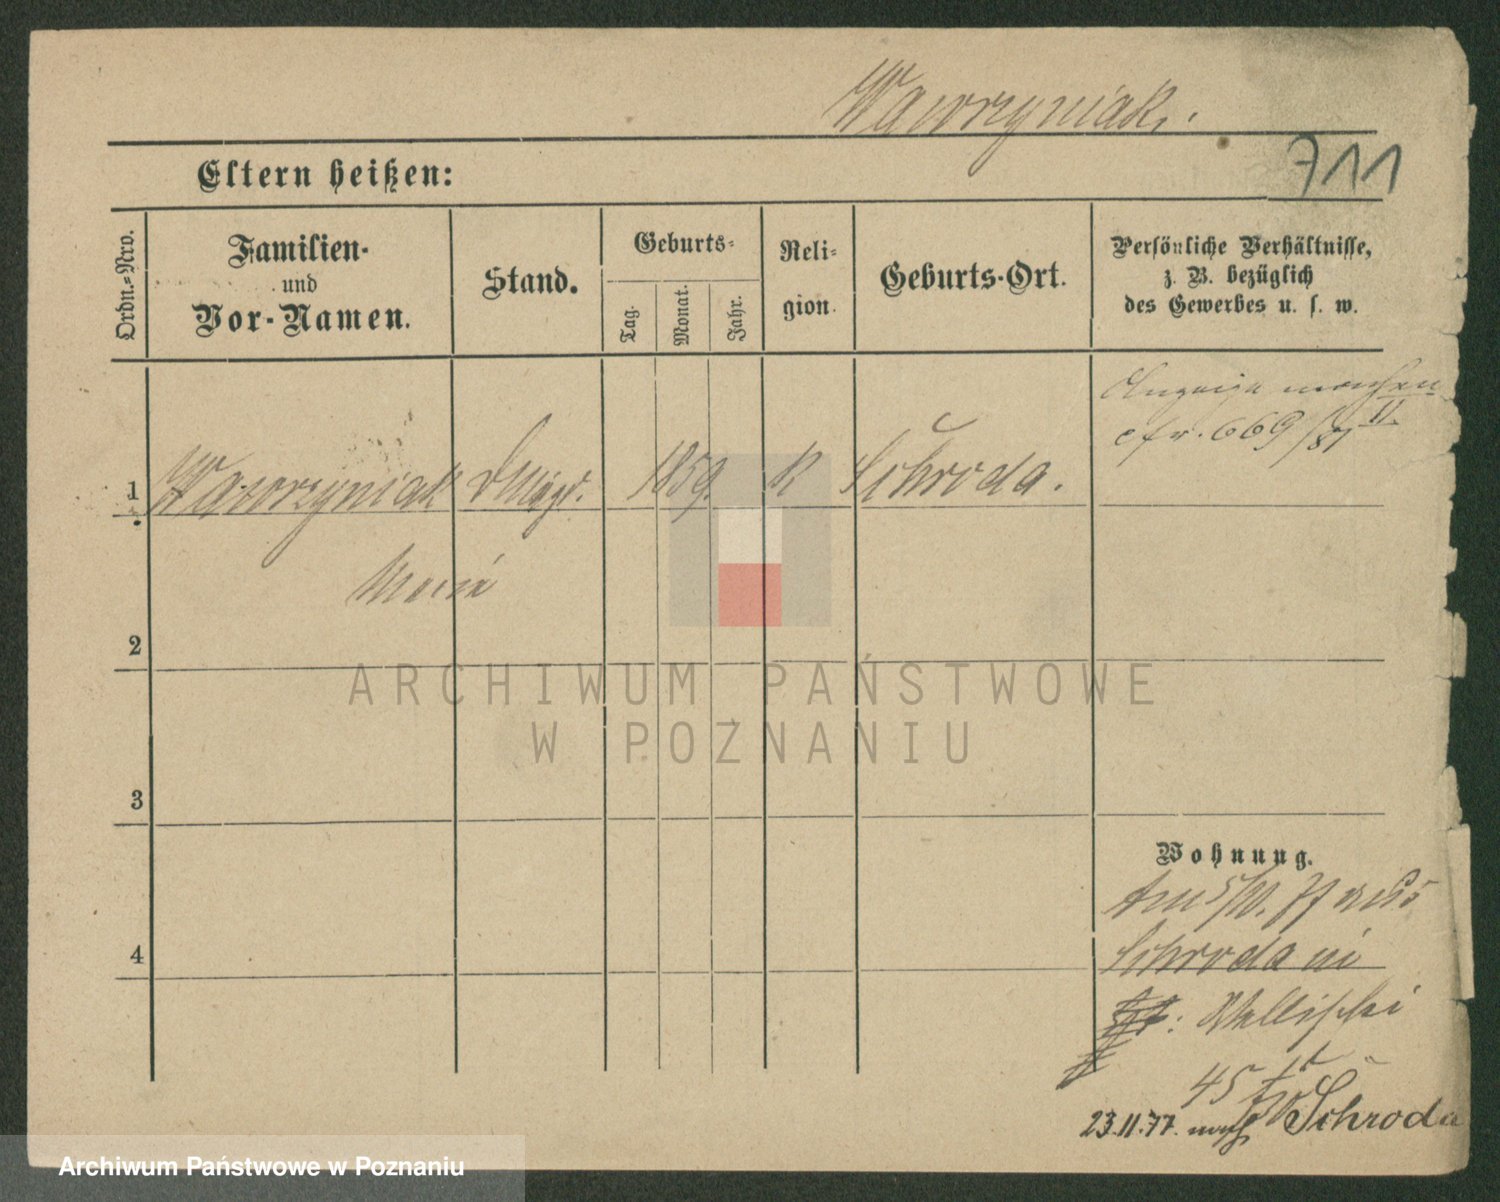 Wawrzyniak.
711
Eltern heißen:
Ordn.-Nro.
Familien-
und
Vor-Namen.
Stand.
Geburts-
Tag.
Monat.
Jahr.
Reli-
gion.
Geburts-Ort.
Persönliche Verhältnisse,
z. B. bezüglich
des Gewerbes u. s. w.
cfr. 669/81 II.
1 Wawrzyniak 1859. K Schroda.
Maria
2
3
4
Wohnung.
Schroda
45
23.11.77. nach Schroda
ARCHIWUM PAŃSTWOWE
W POZNANIU
Archiwum Państwowe w Poznaniu